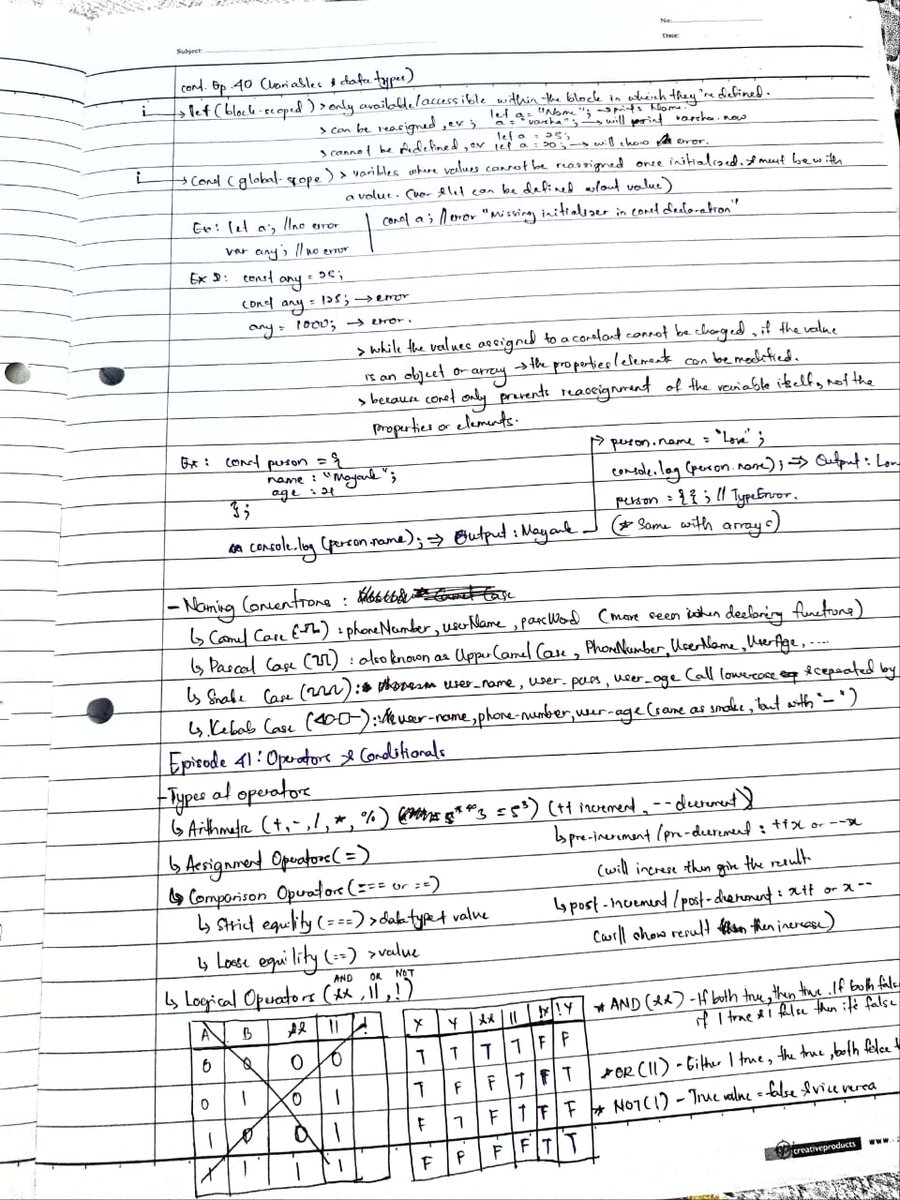 No:
Date:
Subject:
cont. Ep. 40 (variables & datatypes)
i → let (block-scoped) > only available/accessible within the block in which they're defined.
> can be reasigned, ex; let a = "Name"; → prints Name.
a = "varsha"; → will print varsha now
> cannot be redefined, ex let a = 25;
let a = 20; → will show error.
i → Const (global-scope) > varibles where values cannot be reassigned once initialised. & must be with
a value. (var & let can be defined w/out value)
Ex: let a; //no error | const a; //error "missing initialiser in const declaration"
var any; //no error
Ex 2: const any = 25;
const any = 125; → error
any = 1000; → error.
> while the values assigned to a constant cannot be changed, if the value
is an object or array → the properties/elements can be modified.
> because const only prevents reassignment of the variable itself, not the
properties or elements.
Ex: const person = {
name: "Mayank";
age: 21
};
console.log (person.name); ⇒ Output: Mayank
→ person.name = "Love";
console.log (person.name); ⇒ Output: Lov
person = { }; // TypeError.
(* Same with arrays)
- Naming Conventions:
↳ Camel Case: phoneNumber, userName, passWord (more seen when declaring functions)
↳ Pascal Case: also known as Upper Camel Case, PhoneNumber, UserName, UserAge, ....
↳ Snake Case: user_name, user_pass, user_age (all lowercase & seperated by
↳ Kebab Case: user-name, phone-number, user-age (same as snake, but with "-")
Episode 41: Operators & Conditionals
- Types of operators
↳ Arithmetic (+, -, /, *, %) 5**3 = 5³) (++ increment, -- decrement)
↳ pre-increment / pre-decrement: ++x or --x
(will increse then give the result.
↳ post-increment / post-decrement: x++ or x--
(will show result then increase)
↳ Assignment Operators (=)
↳ Comparison Operators (=== or ==)
↳ Strict equility (===) > datatype + value
↳ Loose equility (==) > value
AND OR NOT
↳ Logical Operators (&&, ||, !)
A B && || !
0 0 0 0
0 1 0 1
1 0 0 1
1 1 1 1
X Y && || !X !Y
T T T T F F
T F F T F T
F T F T F
F F F F T T
* AND (&&) - If both true, then true. If both fals
if 1 true & 1 false then it's false
* OR (||) - Either 1 true, the true, both false t
* NOT (!) - True value = false & vice versa
creativeproducts
www.